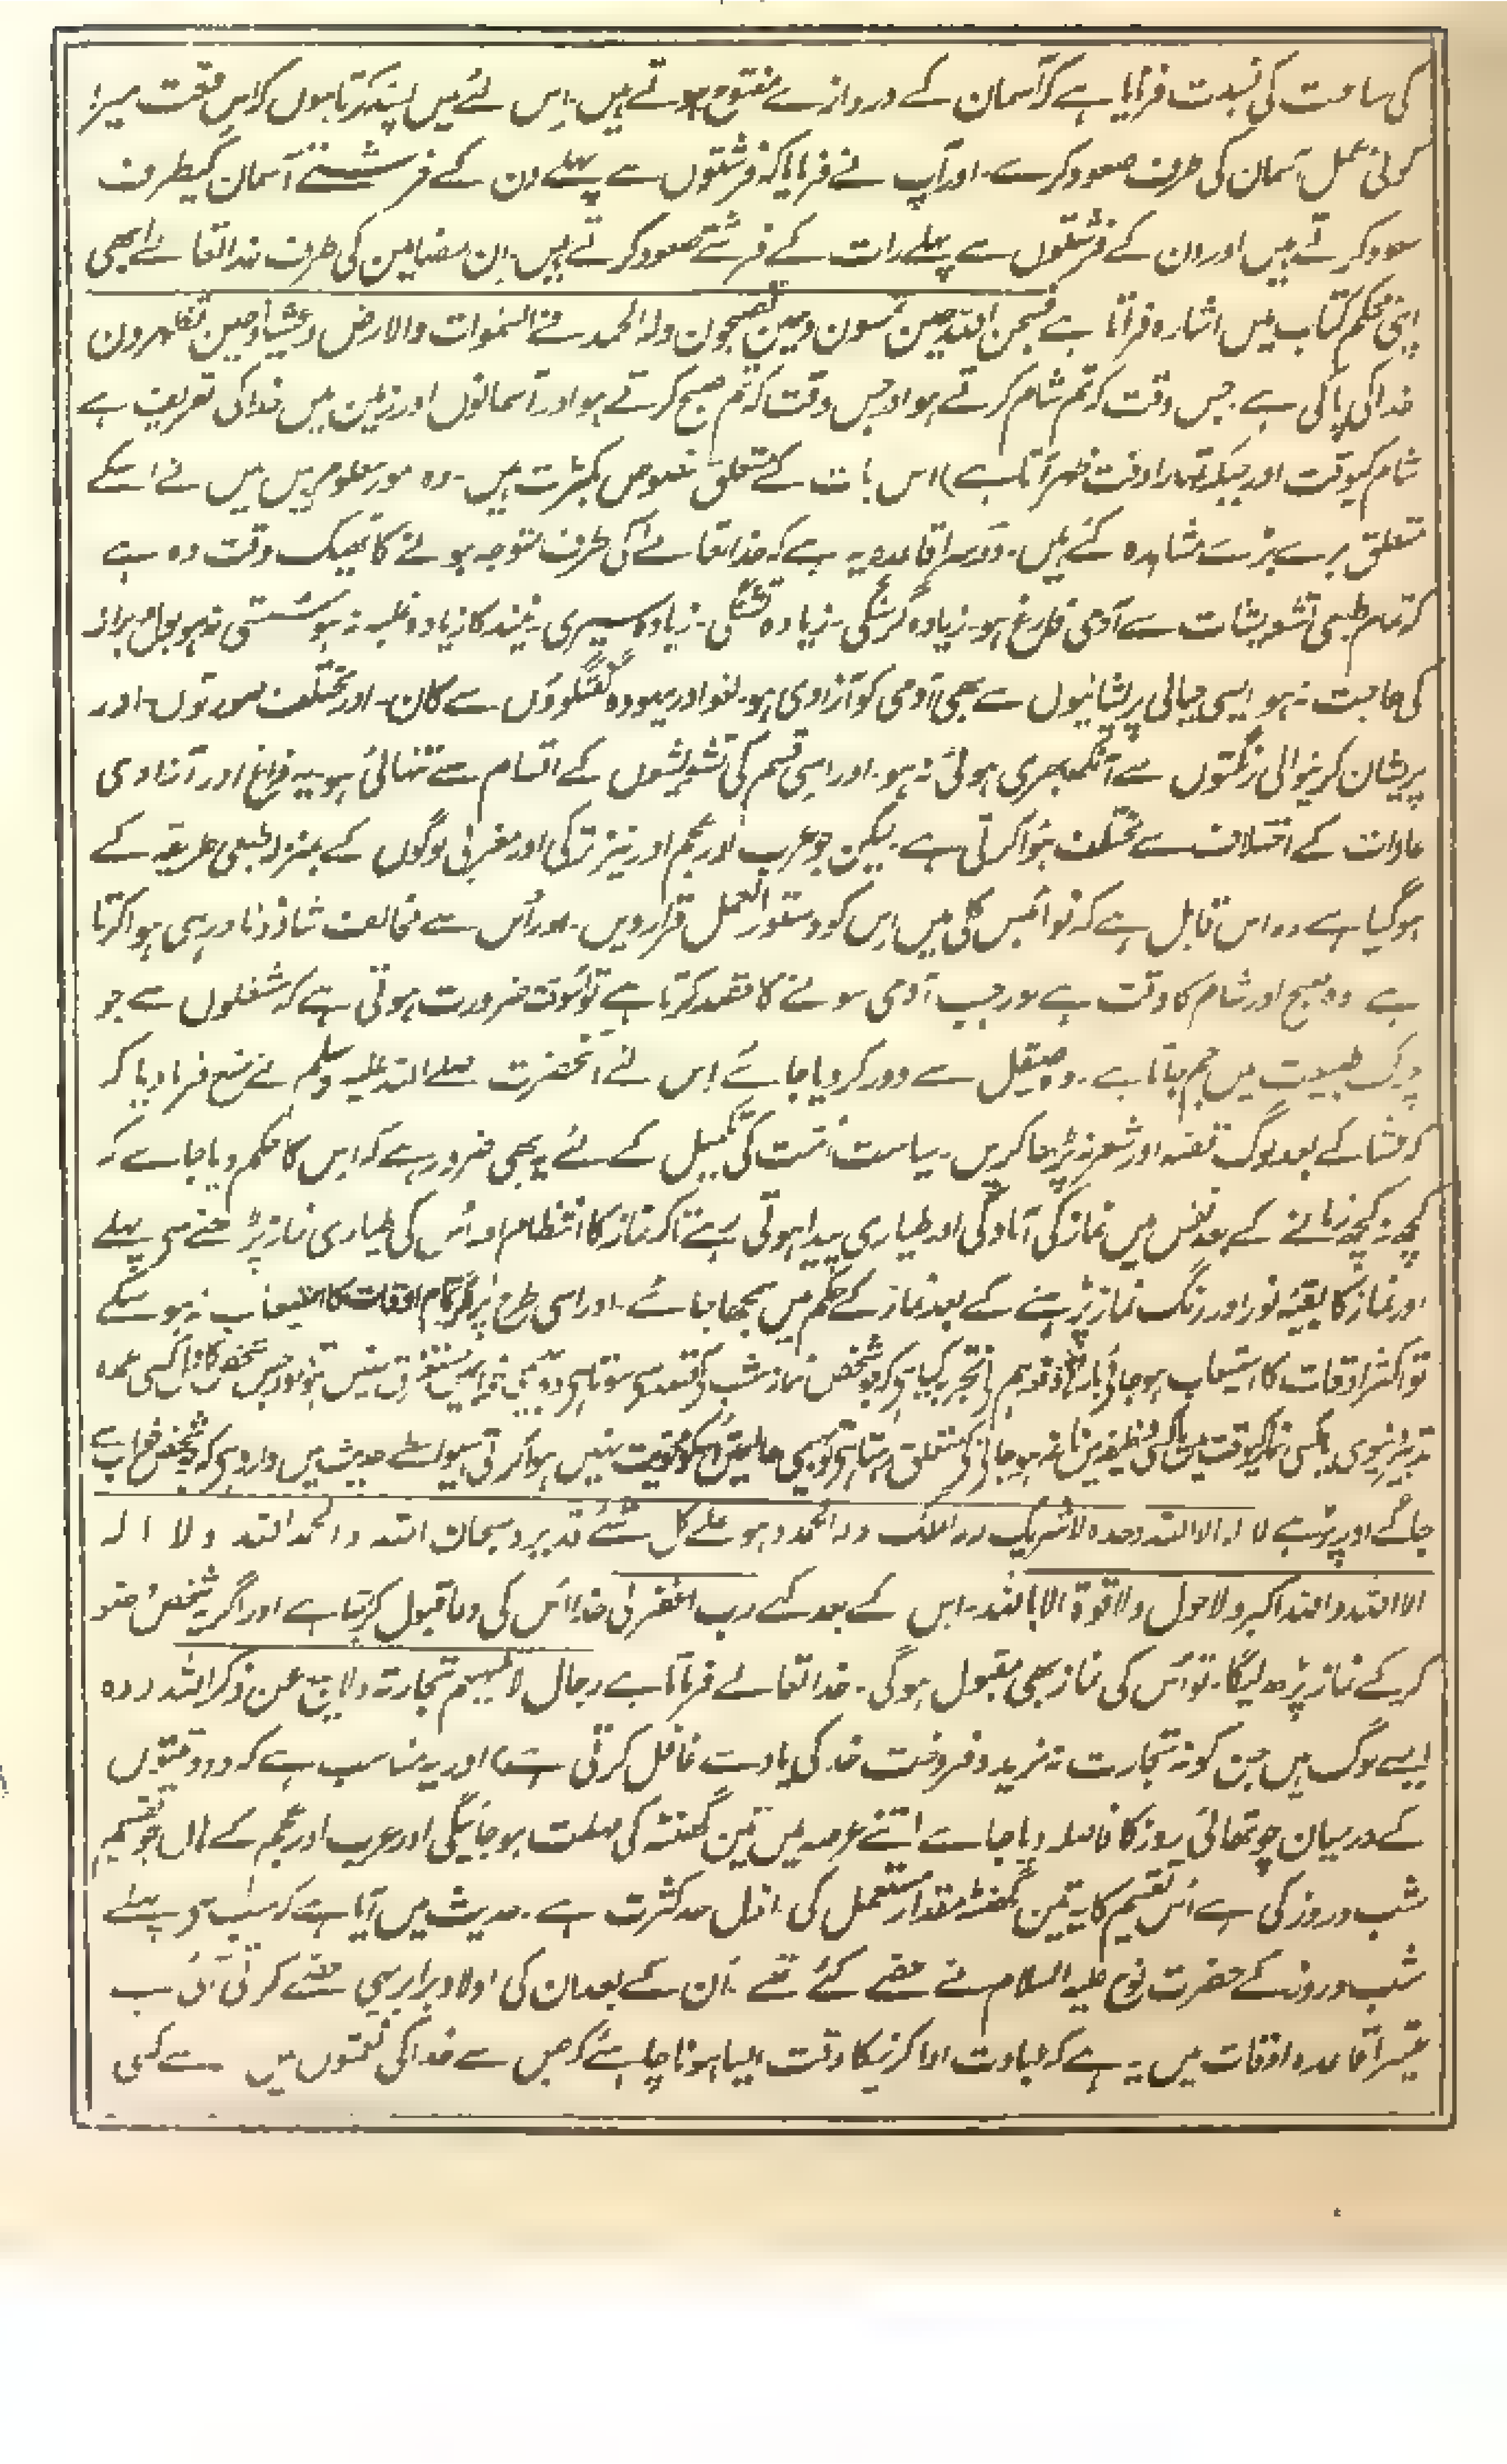 کی ساعت کی نسبت فرمایا ہے کہ آسمان کے دروازے مفتوح ہوتے ہیں۔ اِس لئے میں پسند کرتا ہوں کہ اس وقت میرا
کوئی عمل آسمان کی طرف صعود کرے۔ اور آپ نے فرمایا کہ فرشتوں سے پہلے دن کے فرشتے آسمان کیطرف
صعود کرتے ہیں اور دن کے فرشتوں سے پہلے رات کے فرشتے صعود کرتے ہیں۔ ان مضامین کی طرف خدا تعالےٰ بھی
اپنی محکم کتاب میں اشارہ فرماتا ہے فسبحن اللہ حین تمسون وحین تصبحون ولہ الحمد فے السموات والارض وعشیا وحین تظہرون
خدا کی پاکی ہے۔ جس وقت کہ تم شام کرتے ہو اور جس وقت کہ تم صبح کرتے ہو اور آسمانوں اور زمین میں خدا کی تعریف ہے
شام کیوقت اور جبکہ تمہارا وقت ظہر آتا ہے) اس بات کے متعلق نصوص بکثرت ہیں۔ وہ مور معلوم ہیں میں نے اسکے
متعلق بڑے بڑے مشاہدہ کئے ہیں۔ دوسرا قاعدہ یہ ہے کہ خدا تعالےٰ کی طرف متوجہ ہونے کا ٹھیک وقت وہ ہے
کہ تمام طبعی تشویشات سے آدمی فارغ ہو۔ زیادہ گرسنگی۔ زیادہ تشنگی۔ زیادہ سیری۔ نیند کا زیادہ غلبہ نہ ہو سستی نہ ہو بول براز
کی حاجت نہ ہو ایسی خیالی پریشانیوں سے بھی آدمی کو آزادی ہو۔ لغو اور بیہودہ گفتگووں سے کان۔ اور مختلف صورتوں۔ اور
پریشان کرنیوالی رنگتوں سے آنکھ بھری ہوئی نہ ہو۔ اور اسی قسم کی تشویشوں کے اقسام سے تنہائی ہو یہ فراغ اور آزادی
عادات کے اختلاف سے مختلف ہوا کرتی ہے۔ لیکن جو عرب اور عجم اور نیز ترکی اور مغربی لوگوں کے بمنزلہ طبعی طریقہ کے
ہو گیا ہے وہ اس قابل ہے کہ نوامیس کلی میں اِس کو دستور العمل قرار دیں۔ اور اُس سے مخالفت شاذ و نادر ہی ہوا کرتا
ہے وہ صبح اور شام کا وقت ہے اور جب آدمی سونے کا قصد کرتا ہے تو اسوقت ضرورت ہوتی ہے کہ شغلوں سے جو
چرک طبیعت میں جم جاتا ہے۔ وہ صیقل سے دور کر دیا جائے اِس لئے آنحضرت صلے اللہ علیہ وسلم نے منع فرما دیا کہ
کہ عشا کے بعد لوگ قصہ اور شعر نہ پڑھا کریں۔ سیاست اُمت کی تکمیل کے لئے یہ بھی ضرور ہے کہ اِس کا حکم دیا جاے کہ
کچھ نہ کچھ زمانے کے بعد نفس میں نماز کی آمادگی اور طیاری پیدا ہوتی رہے تاکہ نماز کا انتظام اور اُس کی طیاری نماز پڑھنے سی پہلے
اور نماز کا بقیہ نور اور رنگ نماز پڑہنے کے بعد نماز کے حکم میں سمجھا جائے۔ اور اسی طرح پر اگر تمام اوقات کا استیعاب نہ ہو سکے
تو اکثر اوقات کا استیعاب ہو جائے ہم نے تجربہ کیا ہی کہ جو شخص نماز شب کے قصد سی سوتا ہی وہ بہیمی خواب میں مستغرق نہیں ہوتا اور جس شخص کا دل کسی عمدہ
تدبیر دنیوی یا کسی نماز کیوقت یا کسی وظیفہ میں ناغہ نہ ہو جانے کی متعلق رہتا ہی تو بہیمی حالت میں اسکو محویت نہیں ہوا کرتی اسیواسطے حدیث میں وارد ہی کہ جو شخص خواب سے
جاگے اور پڑہے لا الہ الا اللہ وحدہ لاشریک لہ لہ الملک ولہ الحمد وہو علے کل شئے قدیر و سبحان اللہ والحمد اللہ ولا الہ
الا اللہ واللہ اکبر ولاحول ولا قوۃ الا باللہ۔ اس کے بعد کہے رب اغفرلی خدا اُس کی دعا قبول کرتا ہے اور اگر یہ شخص وضو
کر کے نماز پڑھ لیگا۔ تو اُس کی نماز بھی مقبول ہوگی۔ خدا تعالےٰ فرماتا ہے رجال لا تلہیہم تجارۃ ولا بیع عن ذکر اللہ (وہ
ایسے لوگ ہیں جن کو نہ تجارت نہ خرید و فروخت خدا کی یاد سے غافل کرتی ہے) اور یہ مناسب ہے کہ دو وقتوں
کے درمیان چوتھائی روز کا فاصلہ دیا جاے اتنے عرصہ میں تین گھنٹہ کی مہلت ہو جائیگی اور عرب اور عجم کے ہاں جو تقسیم
شب و روز کی ہے اُس تقسیم کا یہ تین گھنٹہ مقدار مستعمل کی اول حد کثرت ہے۔ حدیث میں آیا ہے کہ سب سی پہلے
شب و روز کے حضرت نوح علیہ السلام نے حصے کئے تھے۔ اُن کے بعد ان کی اولاد برابر یہی حصے کرتی آئی ب
تیسرا قاعدہ اوقات میں یہ ہے کہ عبادت ادا کرنیکا وقت ایسا ہونا چاہئے کہ جس سے خدا کی نعمتوں میں سے کسی